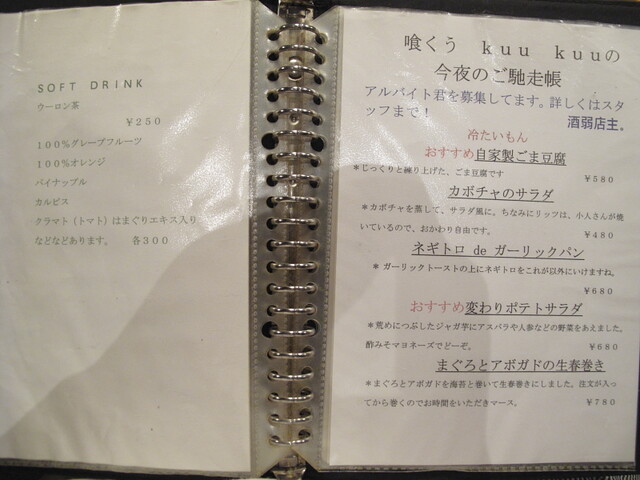 SOFT DRINK
ウーロン茶
￥250
100％グレープフルーツ
100％オレンジ
パイナップル
カルピス
クラマト（トマト）はまぐりエキス入り
などなどあります。 各300
喰くう kuu kuuの
今夜のご馳走帳
アルバイト君を募集してます。詳しくはスタ
ッフまで！
酒弱店主。
冷たいもん
おすすめ自家製ごま豆腐
＊じっくりと練り上げた、ごま豆腐です ￥580
カボチャのサラダ
＊カボチャを蒸して、サラダ風に。ちなみにリッツは、小人さんが焼
いているので、おかわり自由です。 ￥480
ネギトロ de ガーリックパン
＊ガーリックトーストの上にネギトロをこれが以外にいけますね。
￥680
おすすめ変わりポテトサラダ
＊荒めにつぶしたジャガ芋にアスパラや人参などの野菜をあえました。
酢みそマヨネーズでどーぞ。 ￥680
まぐろとアボガドの生春巻き
＊まぐろとアボガドを海苔と巻いて生春巻きにしました。注文が入っ
てから巻くのでお時間をいただきマース。 ￥780